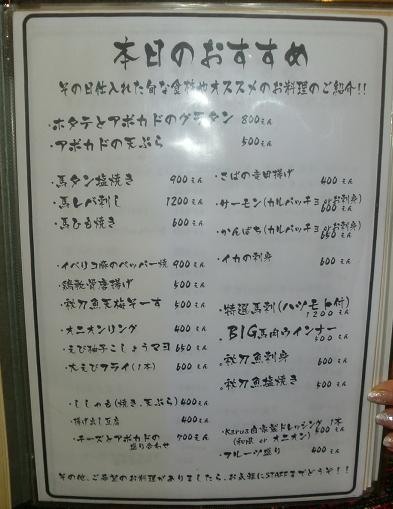 本日のおすすめ
その日仕入れた旬な食材やオススメのお料理のご紹介!!
・ホタテとアボカドのグラタン 800えん
・アボカドの天ぷら 500えん
・馬タン塩焼き 900えん
・馬レバ刺し 1200えん
・馬ひも焼き 600えん
・イベリコ豚のペッパー焼 900えん
・鶏軟骨唐揚げ 500えん
・秋刀魚天梅そーす 500えん
・オニオンリング 400えん
・えび柚子こしょうマヨ 650えん
・大えびフライ(1本) 600えん
・ししゃも(焼き、天ぷら) 400えん
・揚げ出し豆腐 400えん
・チーズとアボカドの
盛り合わせ 700えん
・さばの竜田揚げ
400えん
・サーモン(カルパッチョ orお刺身)
600えん
・かんぱち(カルパッチョ orお刺身)
650えん
・イカの刺身
600えん
・特選馬刺(ハツモト付)
1200えん
・BIG馬肉ウインナー
500えん
・秋刀魚刺身 600えん
・秋刀魚塩焼き 500えん
・Karua自家製ドレッシング 1本
(和風 or オニオン) 500えん
・フルーツ盛り 400えん
その他、ご希望のお料理がありましたら、お気軽にSTAFFまでどうぞ!!